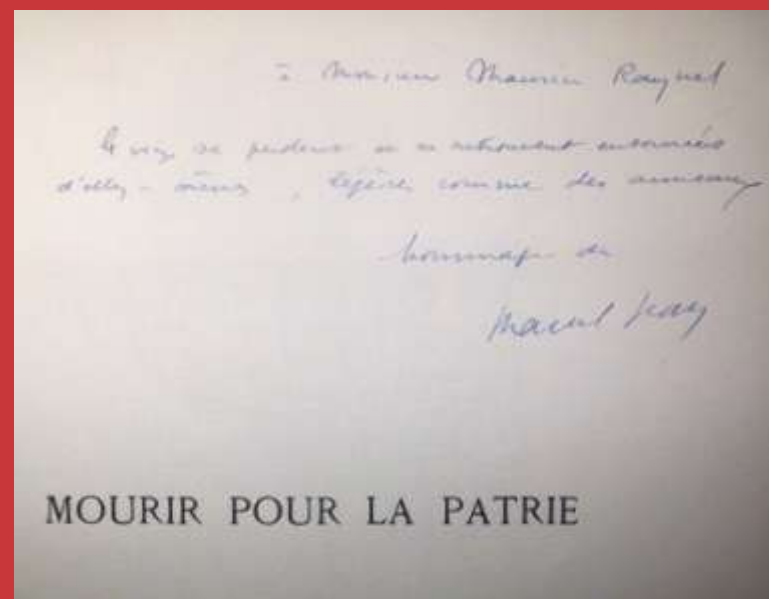 à Monsieur Maurice Raynal
se perdent et se retrouvent
d'elles-mêmes, légères comme des anneaux
hommage de
Marcel Jean
MOURIR POUR LA PATRIE